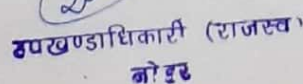 उपखण्डाधिकारी (राजस्व)
नोहर